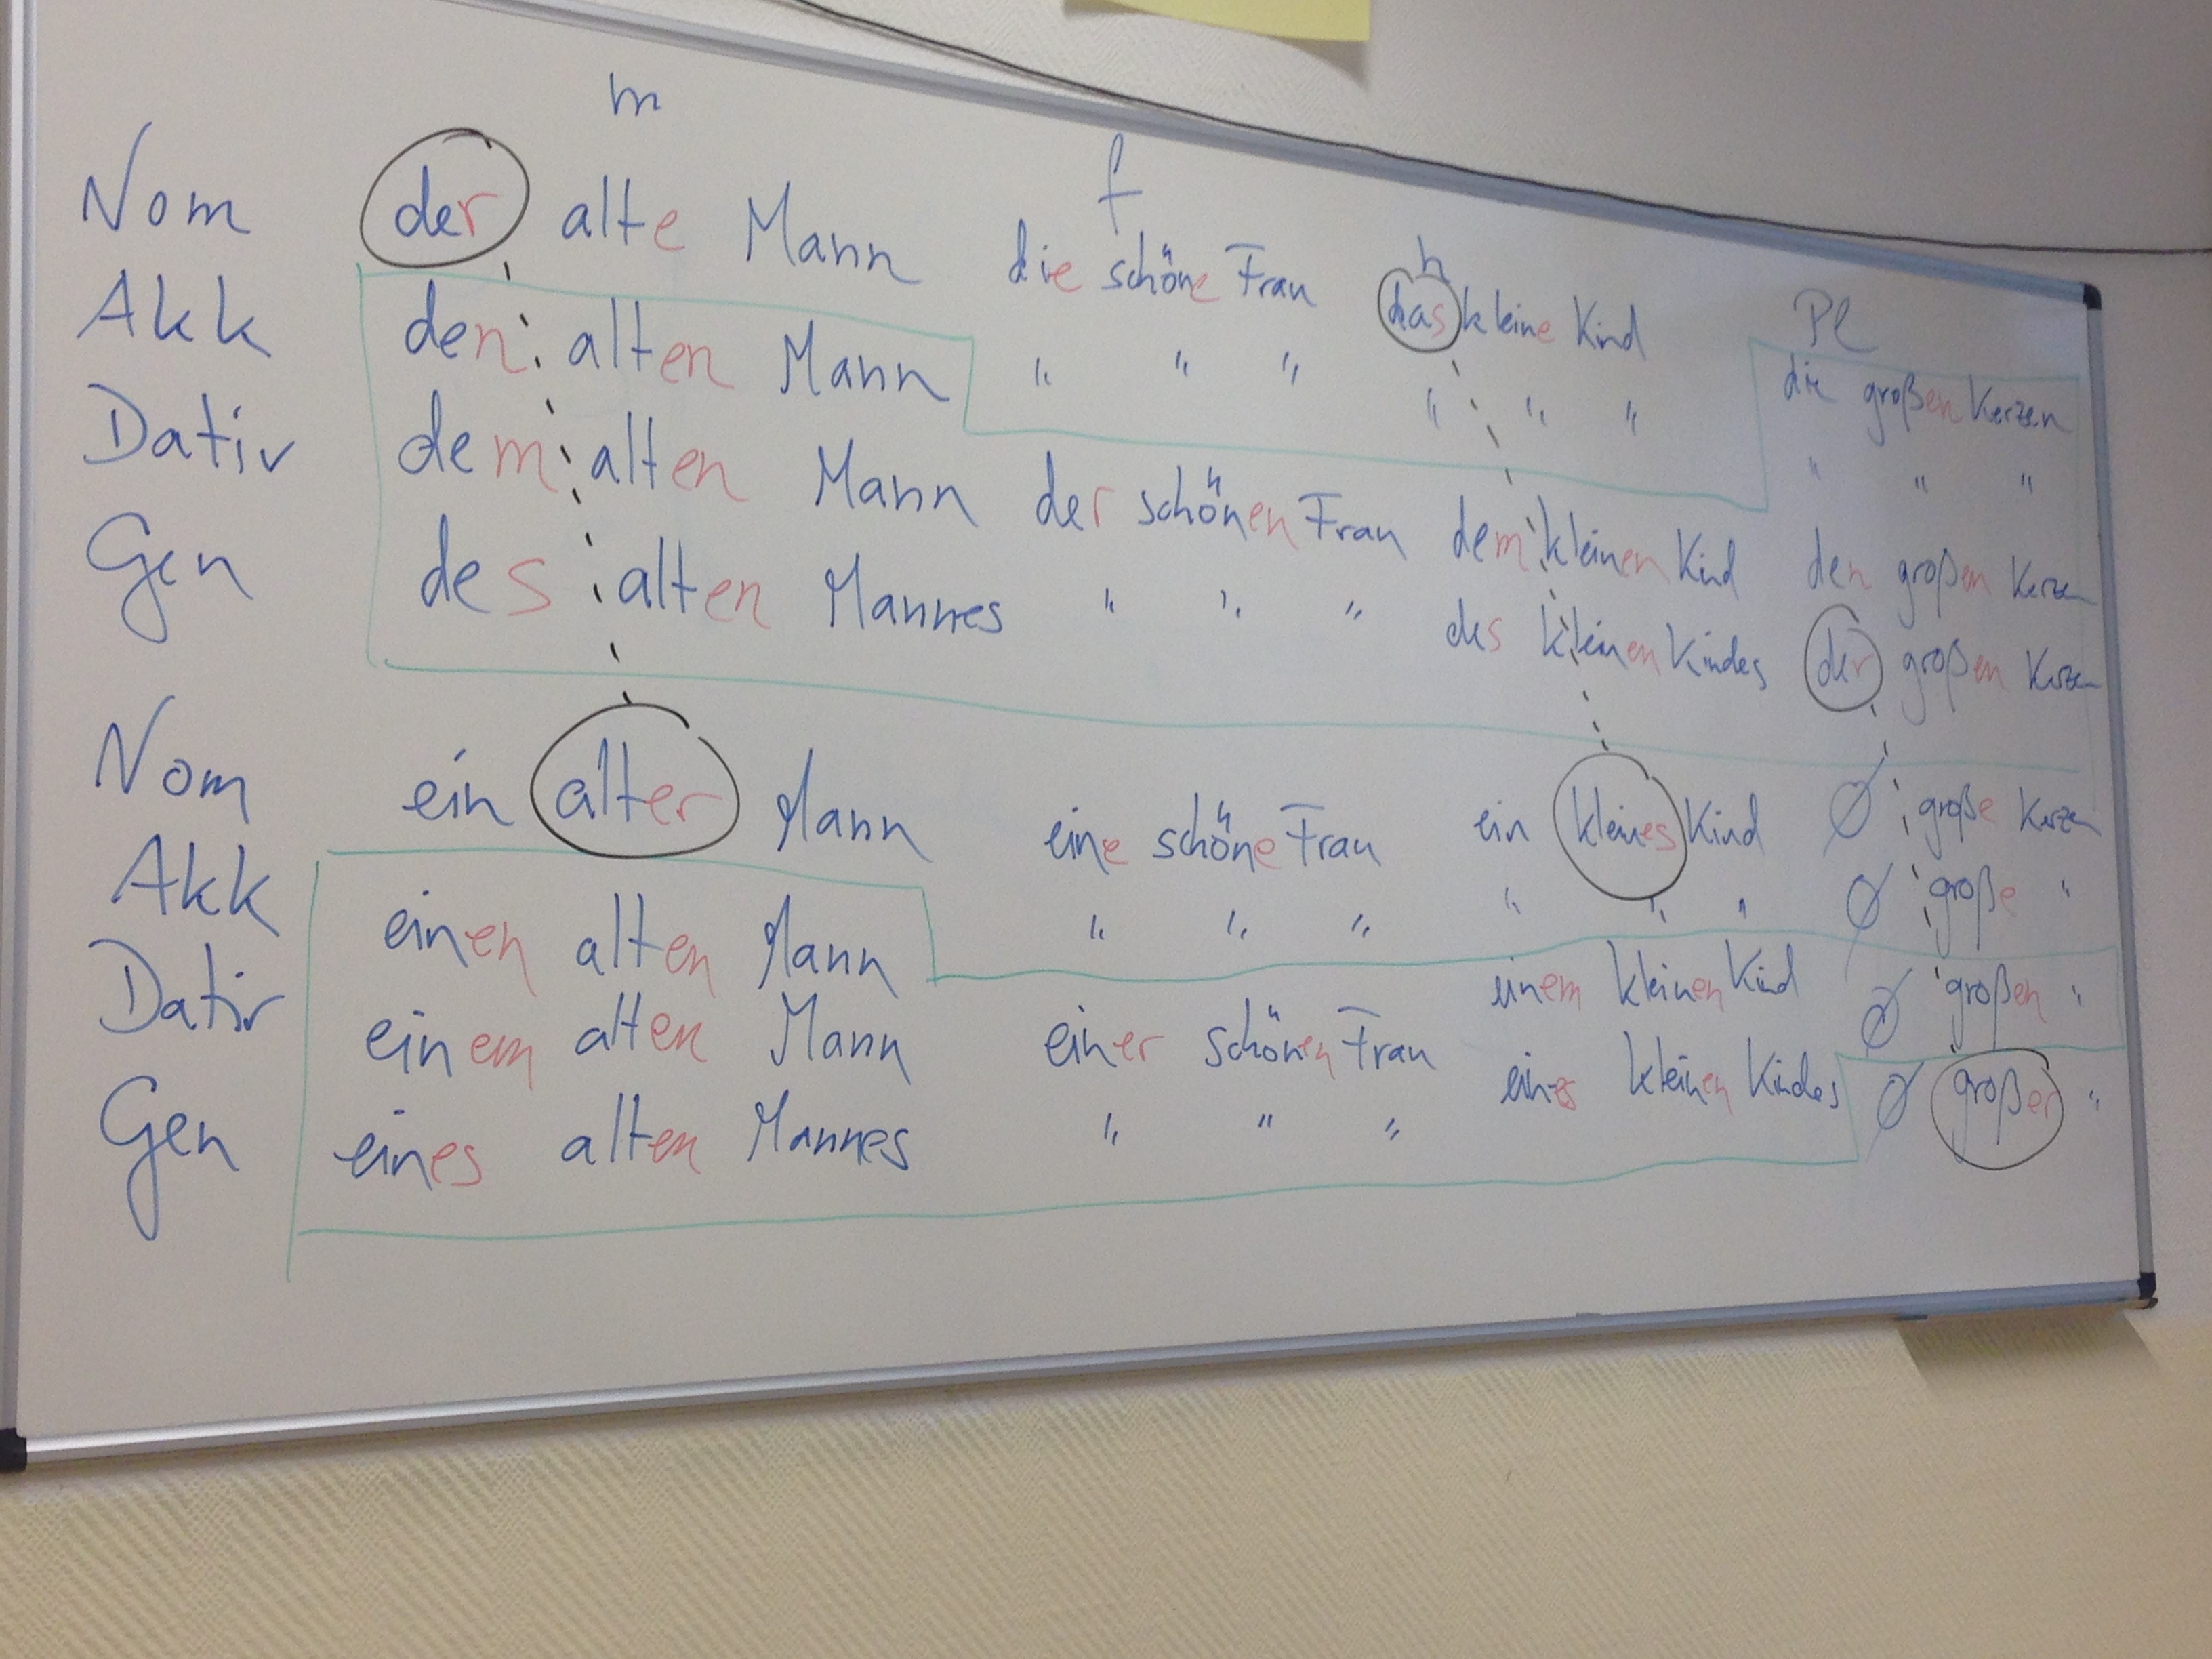 m f n Pl
Nom der alte Mann die schöne Frau das kleine Kind die großen Kerzen
Akk den alten Mann " " " " " " " " "
Dativ dem alten Mann der schönen Frau dem kleinen Kind den großen Kerzen
Gen des alten Mannes " " " des kleinen Kindes der großen Kerzen
Nom ein alter Mann eine schöne Frau ein kleines Kind Ø große Kerzen
Akk einen alten Mann " " " " " " Ø große "
Dativ einem alten Mann einer schönen Frau einem kleinen Kind Ø großen "
Gen eines alten Mannes " " " eines kleinen Kindes Ø großer "